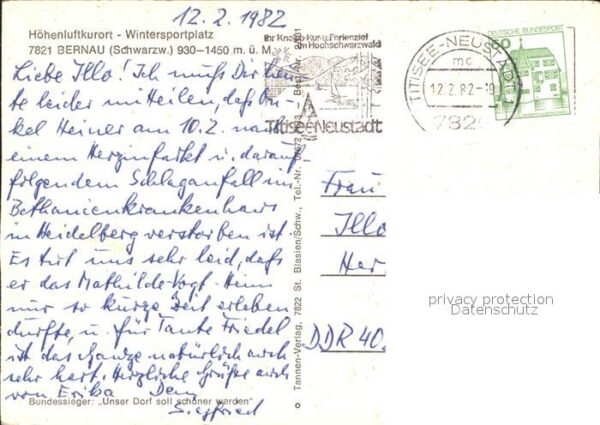 12.2.1982
Höhenluftkurort - Wintersportplatz
7821 BERNAU (Schwarzw.) 930–1450 m. ü. M.
Liebe Illo! Ich muß Dir heu-
te leider mitteilen, daß On-
kel Heiner am 10.2. nach
einem Herzinfarkt u. darauf-
folgendem Schlaganfall im
Bethanienkrankenhaus
in Heidelberg verstorben ist.
Es tut uns sehr leid, daß
er das Mathilde-Vogt-Heim
nur so kurze Zeit erleben
durfte, u. für Tante Friedel
ist das Ganze natürlich auch
sehr hart. Herzliche Grüße auch
von Erika Dein
Siegfried
Bundessieger: „Unser Dorf soll schöner werden"
Tannen-Verlag, 7822 St. Blasien/Schw., Tel.-Nr. Best.-Nr.
Ihr Kneipp-Kur-u. Ferienziel
im Hochschwarzwald
Titisee-Neustadt
TITISEE-NEUSTADT 1
mc
12.2.82
782
DEUTSCHE BUNDESPOST
Frau
Illo
Her
DDR 40
privacy protection
Datenschutz